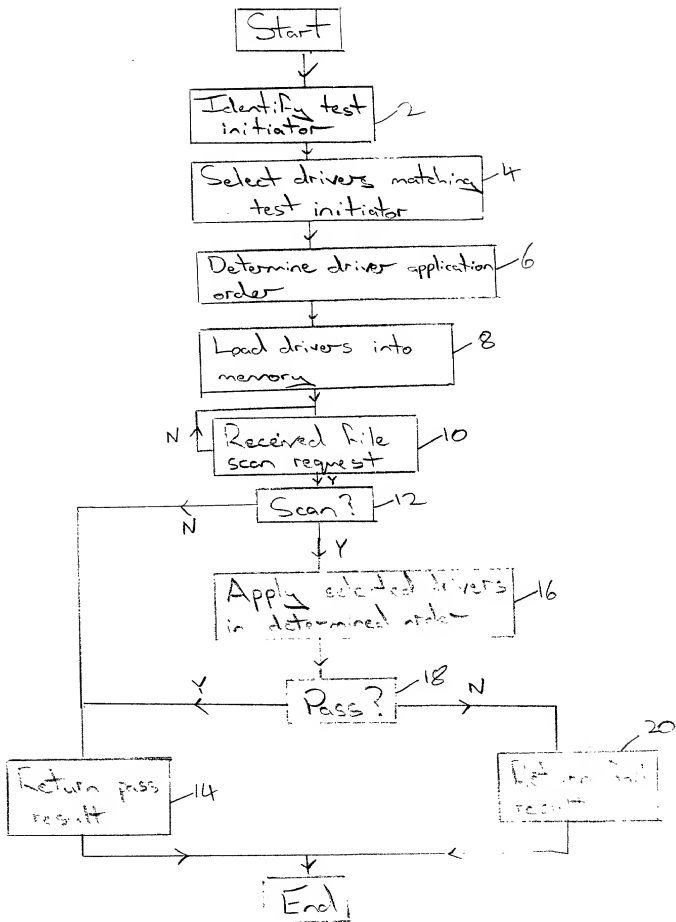 Start
Identify test
initiator
2
Select drivers matching
test initiator
4
Determine driver application
order
6
Load drivers into
memory
8
N
Received file
scan request
10
Y
Scan?
12
N
Y
Apply selected drivers
in determined order
16
Y
Pass?
18
N
20
Return pass
result
14
Return fail
result
End